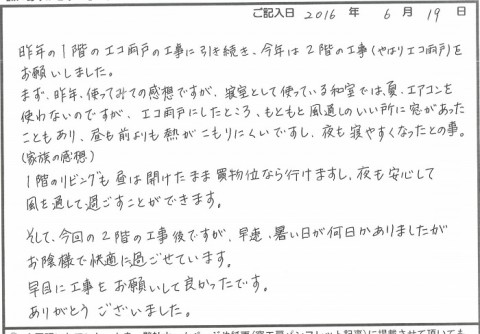 ご記入日 2016 年 6 月 19 日
昨年の1階のエコ雨戸の工事に引き続き、今年は2階の工事(やはりエコ雨戸)を
お願いしました。
まず、昨年、使ってみての感想ですが、寝室として使っている和室では、夏、エアコンを
使わないのですが、エコ雨戸にしたところ、もともと風通しのいい所に窓があった
こともあり、昼も前よりも熱がこもりにくいですし、夜も寝やすくなったとの事。
(家族の感想)
1階のリビングも昼は開けたまま買物位なら行けますし、夜も安心して
風を通して過ごすことができます。
そして、今回の2階の工事後ですが、早速、暑い日が何日かありましたが
お陰様で快適に過ごせています。
早目に工事をお願いして良かったです。
ありがとうございました。